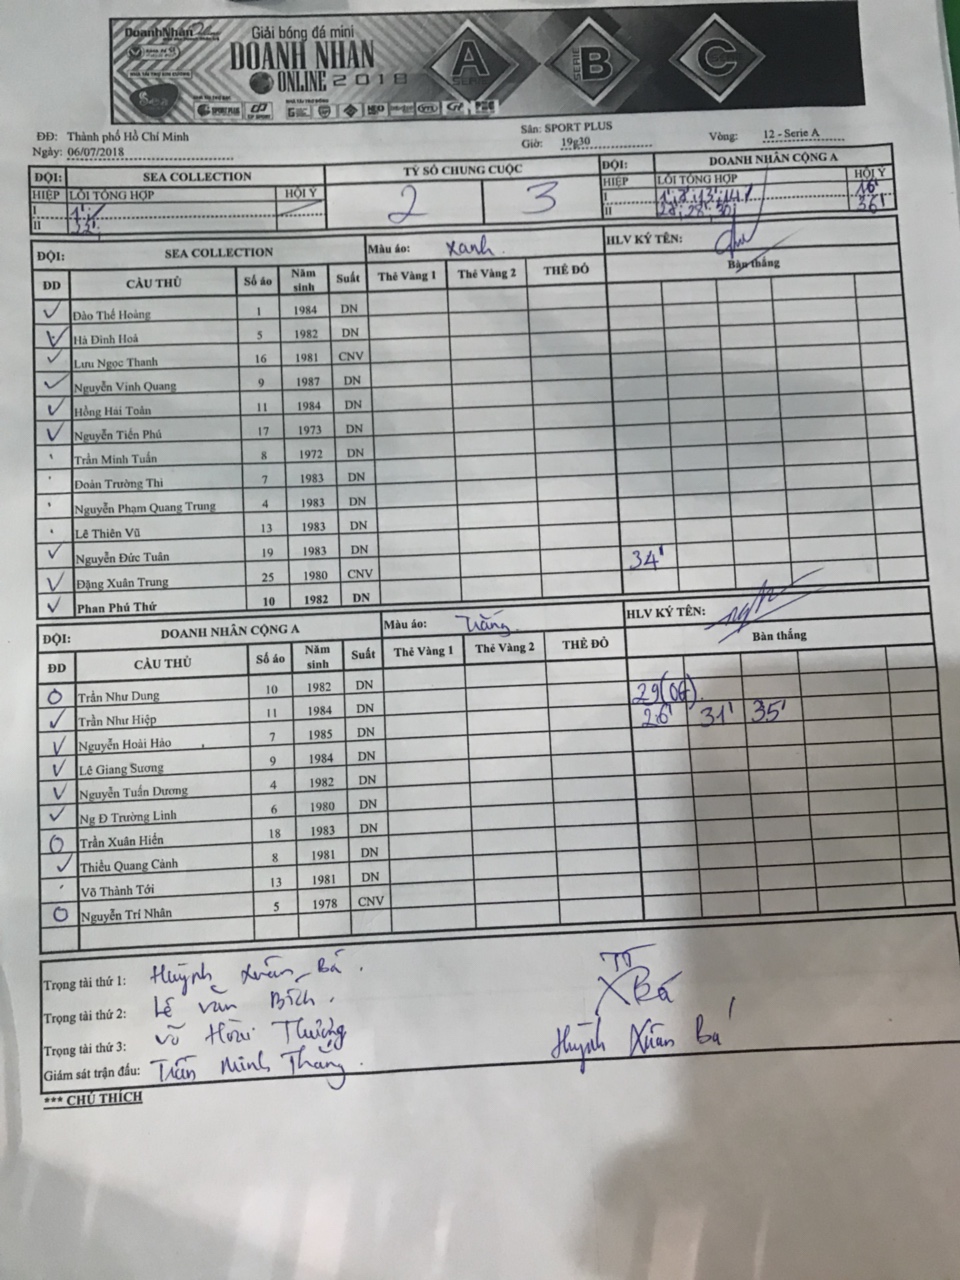 DoanhNhan
Giải bóng đá mini
DOANH NHAN
ONLINE 2018
A B C
SERIE
Sea
SPORT PLUS
ĐĐ: Thành phố Hồ Chí Minh
Sân: SPORT PLUS
Ngày: 06/07/2018
Giờ: 19g30
Vòng: 12 - Serie A
ĐỘI: SEA COLLECTION TỶ SỐ CHUNG CUỘC ĐỘI: DOANH NHÂN CỘNG A
HIỆP LỖI TỔNG HỢP HỘI Ý 2 3 HIỆP LỖI TỔNG HỢP HỘI Ý
I 1' I 16'
II 32' II 28', 36'
ĐỘI: SEA COLLECTION Màu áo: Xanh HLV KÝ TÊN:
ĐD CẦU THỦ Số áo Năm sinh Suất Thẻ Vàng 1 Thẻ Vàng 2 THẺ ĐỎ Bàn thắng
Đào Thế Hoàng 1 1984 DN
Hà Đình Hoà 5 1982 DN
Lưu Ngọc Thanh 16 1981 CNV
Nguyễn Vinh Quang 9 1987 DN
Hồng Hải Toàn 11 1984 DN
Nguyễn Tiến Phú 17 1973 DN
Trần Minh Tuấn 8 1972 DN
Đoàn Trường Thi 7 1983 DN
Nguyễn Phạm Quang Trung 4 1983 DN
Lê Thiên Vũ 13 1983 DN
Nguyễn Đức Tuân 19 1983 DN 34'
Đặng Xuân Trung 25 1980 CNV
Phan Phú Thứ 10 1982 DN
ĐỘI: DOANH NHÂN CỘNG A Màu áo: Trắng HLV KÝ TÊN:
ĐD CẦU THỦ Số áo Năm sinh Suất Thẻ Vàng 1 Thẻ Vàng 2 THẺ ĐỎ Bàn thắng
Trần Như Dung 10 1982 DN 29
Trần Như Hiệp 11 1984 DN 26' 31' 35'
Nguyễn Hoài Hảo 7 1985 DN
Lê Giang Sương 9 1984 DN
Nguyễn Tuấn Dương 4 1982 DN
Ng Đ Trường Linh 6 1980 DN
Trần Xuân Hiển 18 1983 DN
Thiều Quang Cảnh 8 1981 DN
Võ Thành Tới 13 1981 DN
Nguyễn Trí Nhân 5 1978 CNV
Trọng tài thứ 1: Huỳnh Xuân Bá
Trọng tài thứ 2: Lê Văn Bích
Trọng tài thứ 3: Võ Hoài Thương
Giám sát trận đấu: Trần Minh Thắng
TT
XBá
Huỳnh Xuân Bá
*** CHÚ THÍCH